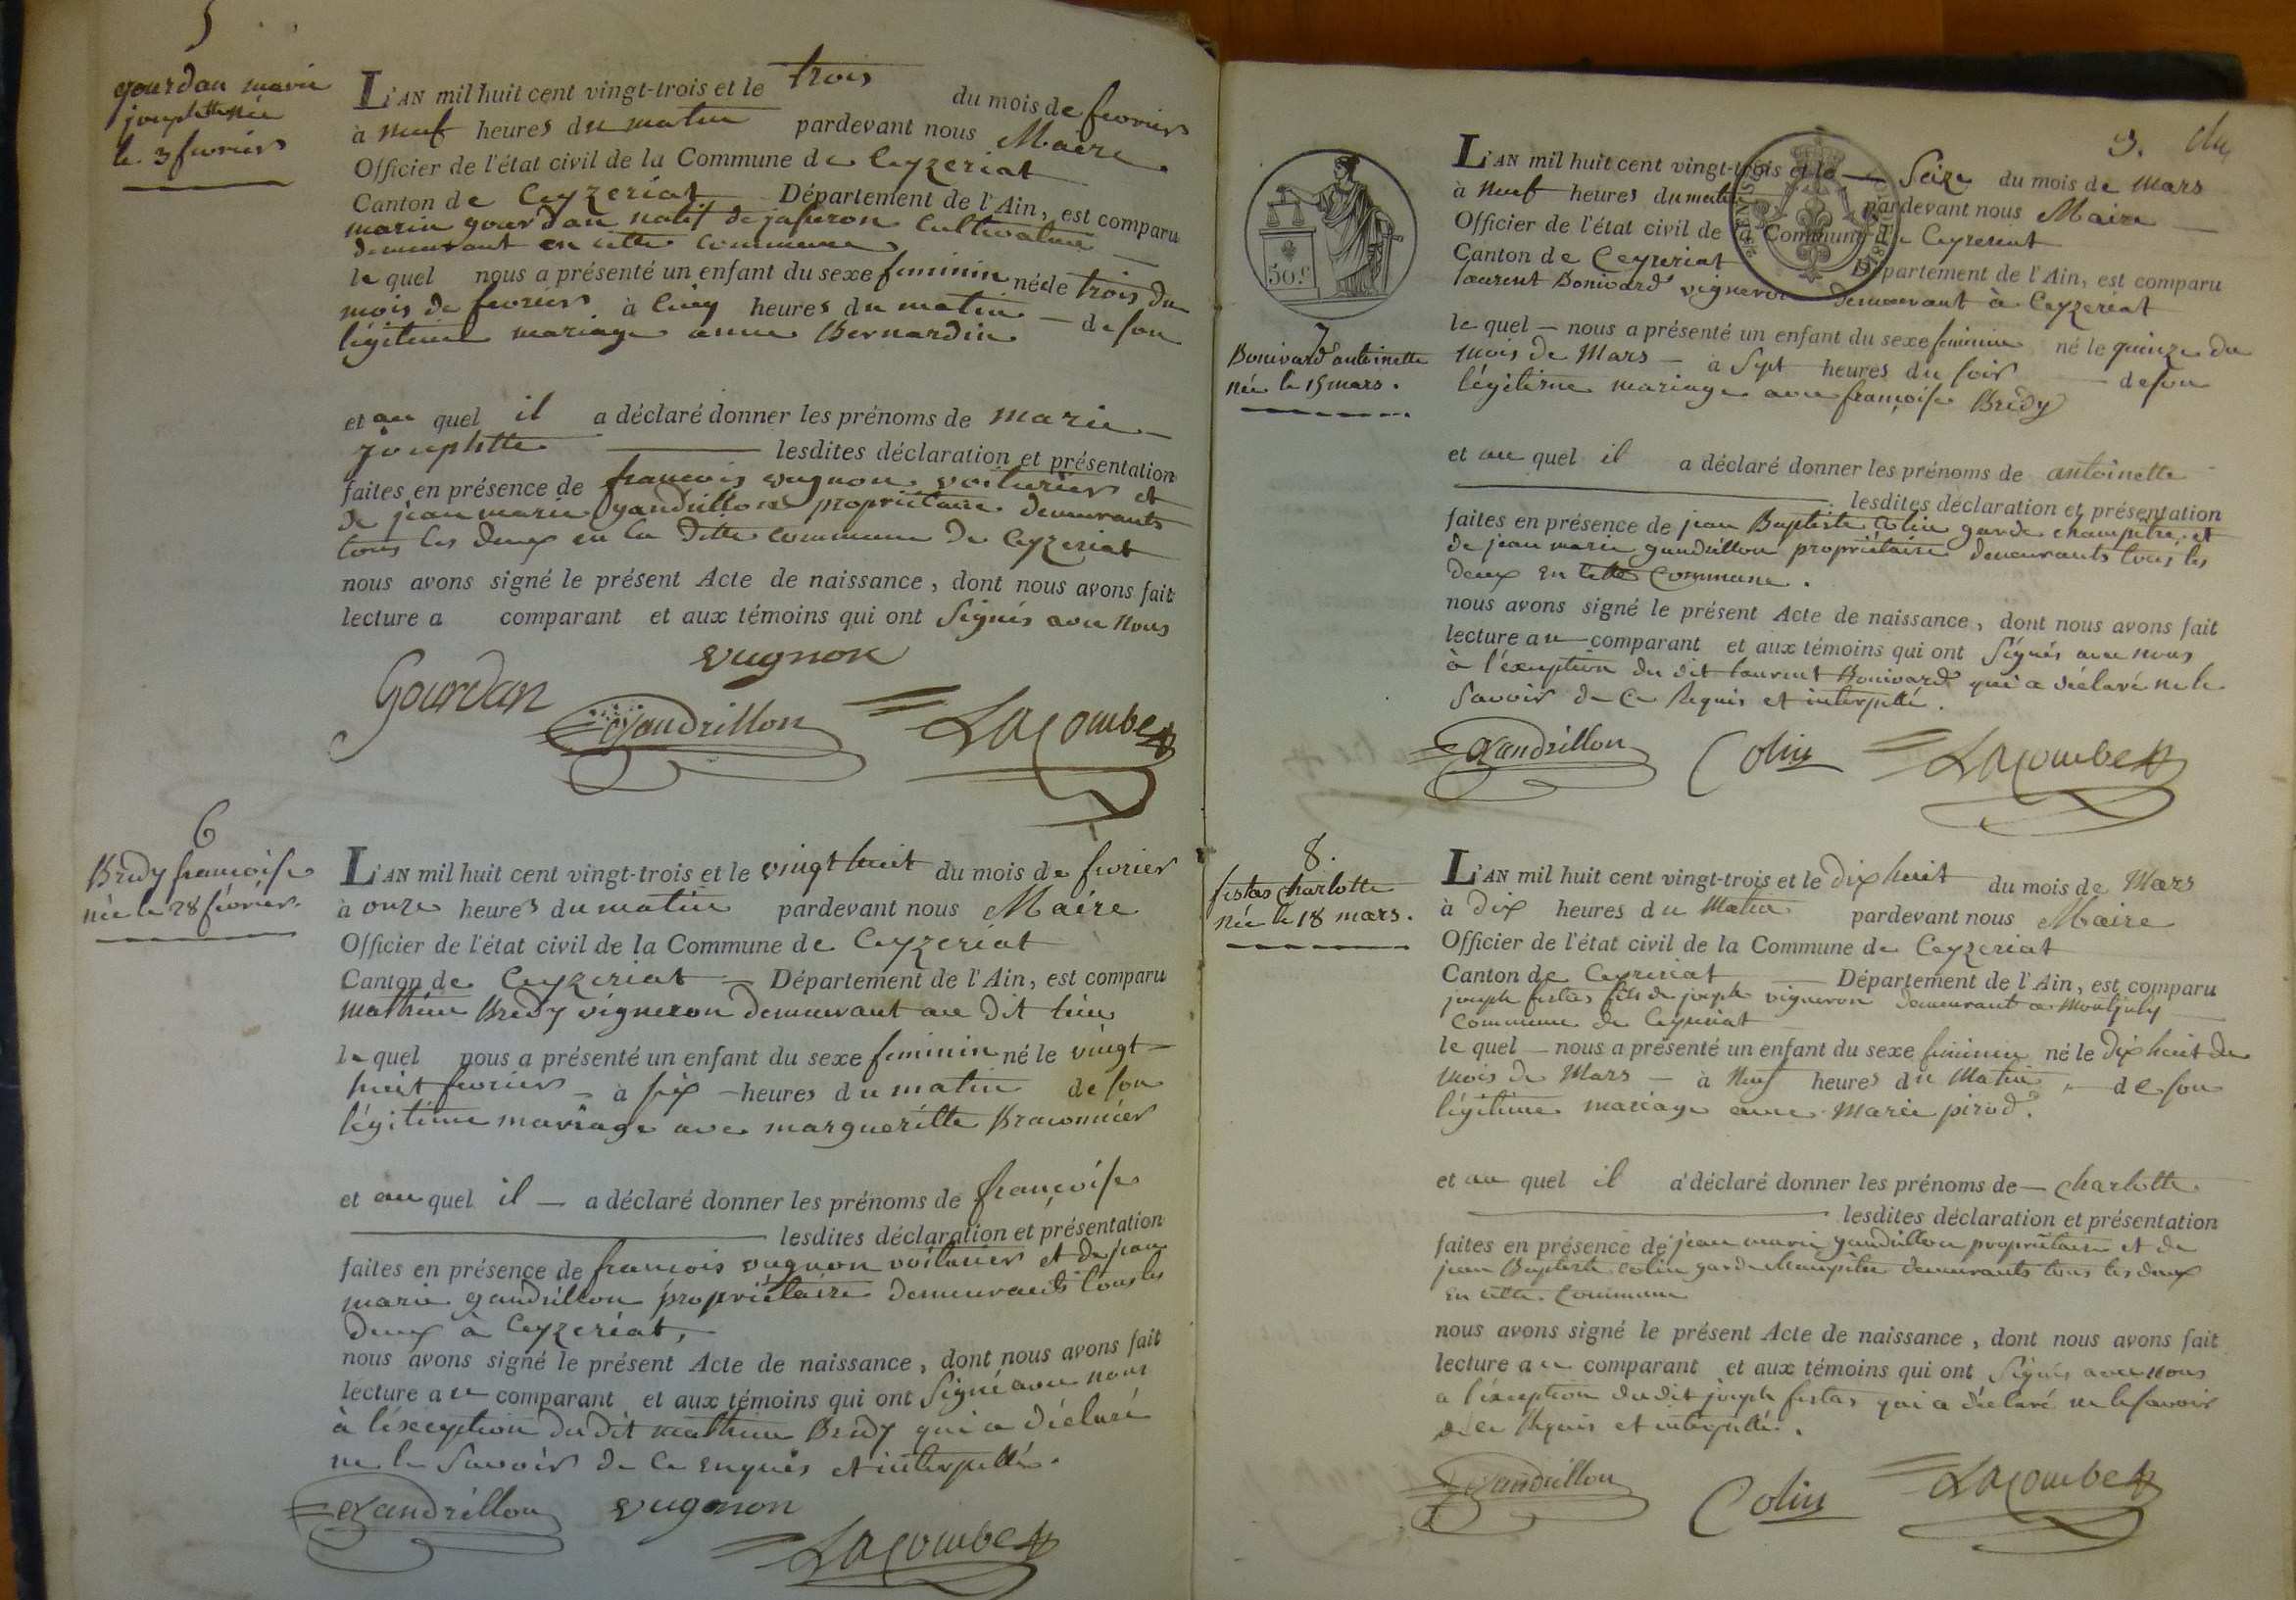 5
gourdan marie
josephtte née
le 3 fevrier
L'AN mil huit cent vingt-trois et le trois du mois de fevrier
à neuf heures du matin pardevant nous Maire
Officier de l'état civil de la Commune de Ceyzeriat
Canton de Ceyzeriat Département de l'Ain, est comparu
marin gourdan natif de jaseron Cultivateur
demeurant en cette commune
le quel nous a présenté un enfant du sexe feminin né le trois du
mois de fevrier à cinq heures du matin de son
légitime mariage avec Bernardin
et au quel il a déclaré donner les prénoms de marie
josephtte lesdites déclaration et présentation
faites en présence de francois vugnon voiturier et
de jean marie gandrillon propriétaire demeurants
tous les deux en la ditte commune de Ceyzeriat
nous avons signé le présent Acte de naissance, dont nous avons fait
lecture a comparant et aux témoins qui ont Signés avec nous
vugnon
Gourdan
Gandrillon
LaCombe
6
Bredy francoise
née le 28 février.
L'AN mil huit cent vingt-trois et le vingt huit du mois de fevrier
à onze heures du matin pardevant nous Maire
Officier de l'état civil de la Commune de Ceyzeriat
Canton de Ceyzeriat Département de l'Ain, est comparu
mathieu Bredy vigneron demeurant au dit lieu
le quel nous a présenté un enfant du sexe feminin né le vingt
huit fevrier à six heures du matin de son
légitime mariage avec margueritte Braconnier
et au quel il a déclaré donner les prénoms de françoise
lesdites déclaration et présentation
faites en présence de francois vugnon voiturier et de jean
marie gandrillon propriétaire demeurants tous les
deux à Ceyzeriat,
nous avons signé le présent Acte de naissance, dont nous avons fait
lecture au comparant et aux témoins qui ont Signé avec nous
à l'éxception du dit mathieu Bredy qui a déclaré
ne le Savoir de ce enquis et interpellé.
Gandrillon
vugnon
LaCombe
3.
50 c.
L'AN mil huit cent vingt-trois et le Seize du mois de Mars
à neuf heures du matin pardevant nous Maire
Officier de l'état civil de la Commune de Ceyzeriat
Canton de Ceyzeriat Département de l'Ain, est comparu
laurent Bonivard vigneron demeurant à Ceyzeriat
7
Bonivard antoinette
née le 15 mars.
le quel nous a présenté un enfant du sexe feminin né le quinze du
mois de Mars à Sept heures du soir de son
légitime mariage avec françoise Bredy
et au quel il a déclaré donner les prénoms de antoinette
lesdites déclaration et présentation
faites en présence de jean Baptiste Colin garde champêtre, et
de jean marie gandrillon propriétaire demeurants tous les
deux en cette Commune.
nous avons signé le présent Acte de naissance, dont nous avons fait
lecture au comparant et aux témoins qui ont Signés avec nous
à l'éxception du dit laurent Bonivard qui a déclaré ne le
Savoir de ce Requis et interpellé.
Gandrillon
Colin
LaCombe
8.
festas Charlotte
née le 18 mars.
L'AN mil huit cent vingt-trois et le dix huit du mois de Mars
à dix heures du Matin pardevant nous Maire
Officier de l'état civil de la Commune de Ceyzeriat
Canton de Ceyzeriat Département de l'Ain, est comparu
joseph festas fils de joseph vigneron demeurant a Montjuly
Commune de Ceyzeriat
le quel nous a présenté un enfant du sexe feminin né le dix huit du
mois de Mars à Neuf heures du Matin de son
légitime mariage avec Marie pirod.
et au quel il a déclaré donner les prénoms de Charlotte.
lesdites déclaration et présentation
faites en présence de jean marie gandrillon propriétaire et de
jean Baptiste Colin garde champêtre demeurants tous les deux
en cette Commune
nous avons signé le présent Acte de naissance, dont nous avons fait
lecture au comparant et aux témoins qui ont Signés avec nous
a l'éxception du dit joseph festas qui a déclaré ne le savoir
de ce Requis et interpellé.
Gandrillon
Colin
LaCombe